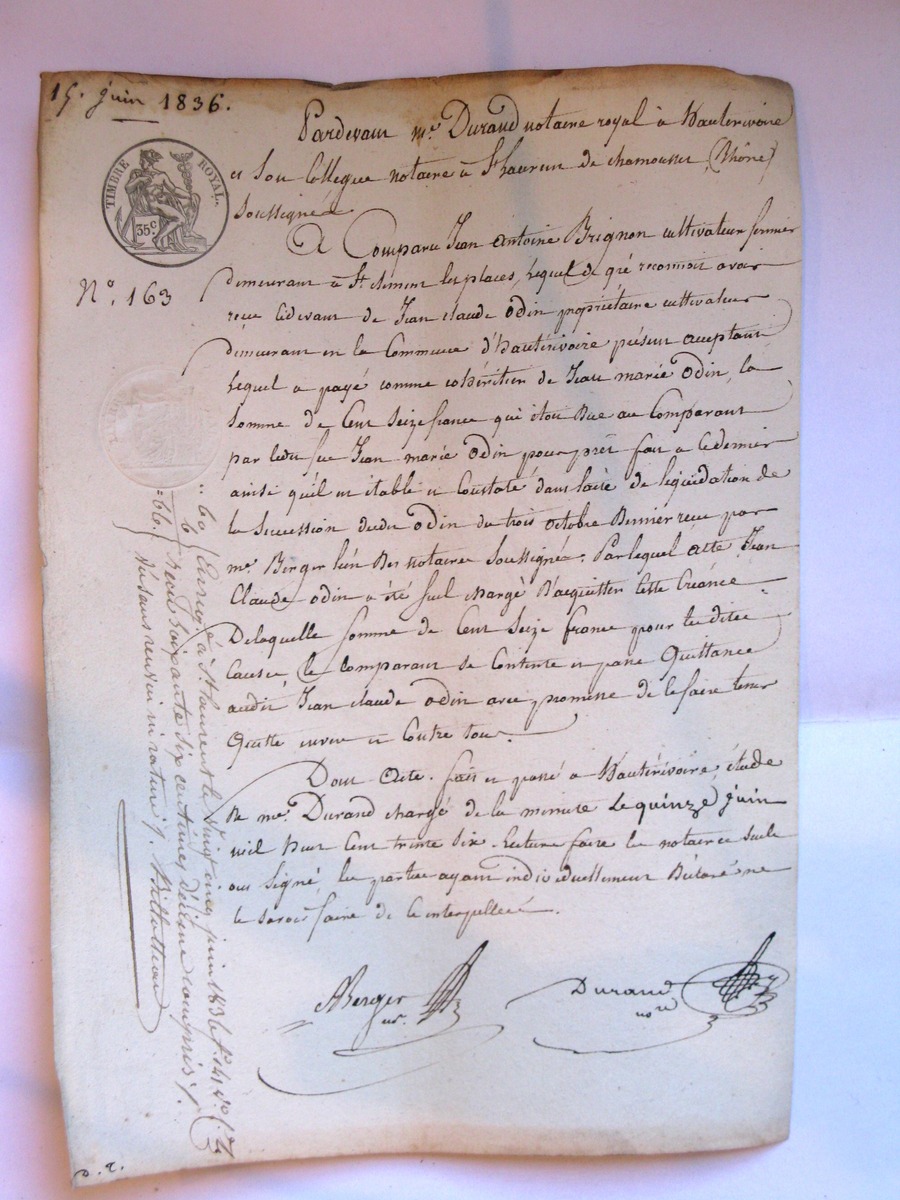 15. juin 1836.
Pardevant me. Durand notaire royal à Hauterivoire
et Son Collègue notaire à St. Laurent de chamousset (Rhône)
Soussignés
TIMBRE ROYAL
35c.
A Comparu Jean Antoine Brignon cultivateur fermier
N°. 163
demeurant à St. Clément les places, Lequel de gré reconnoit avoir
reçu cidevant de Jean claude Odin propriétaire cultivateur
demeurant en la Commune d'hauterivoire présent acceptant
Lequel a payé comme cohéritier de Jean marie Odin, la
Somme de Cent Seize francs qui étoit Due au Comparant
par ledit feu Jean marie Odin pour prêt fait à cedernier
ainsi qu'il en établi et Constaté dans l'acte de liquidation de
la Succession dudit Odin du trois octobre Dernier reçu par
me. Berger l'un Des notaires Soussignés. Par lequel acte Jean
Claude odin a été seul chargé D'acquitter Cette Créance
De laquelle Somme de Cent Seize francs pour lesdites
Causes, le Comparant se Contente et passe Quittance
audit Jean claude Odin avec promesse de le faire tenir
Quitte envers et Contre tous.
Dont Acte. fait et passé à Hauterivoire, étude
De me. Durand chargé de la minute Le quinze juin
mil huit Cent trente Six. Lecture faite les notaires Seuls
ont Signé, les parties ayant individuellement Déclaré ne
le Savoir faire de ce interpellées.
ABerger
nre.
Durand
nore
" 60
6
= 66.
Enreg. à St. Laurent le vingt cinq juin 1836 f°. 141 v°. C. 7
Reçu soixante six centimes dixième compris.
sus sans renvoi ni rature
D. R.